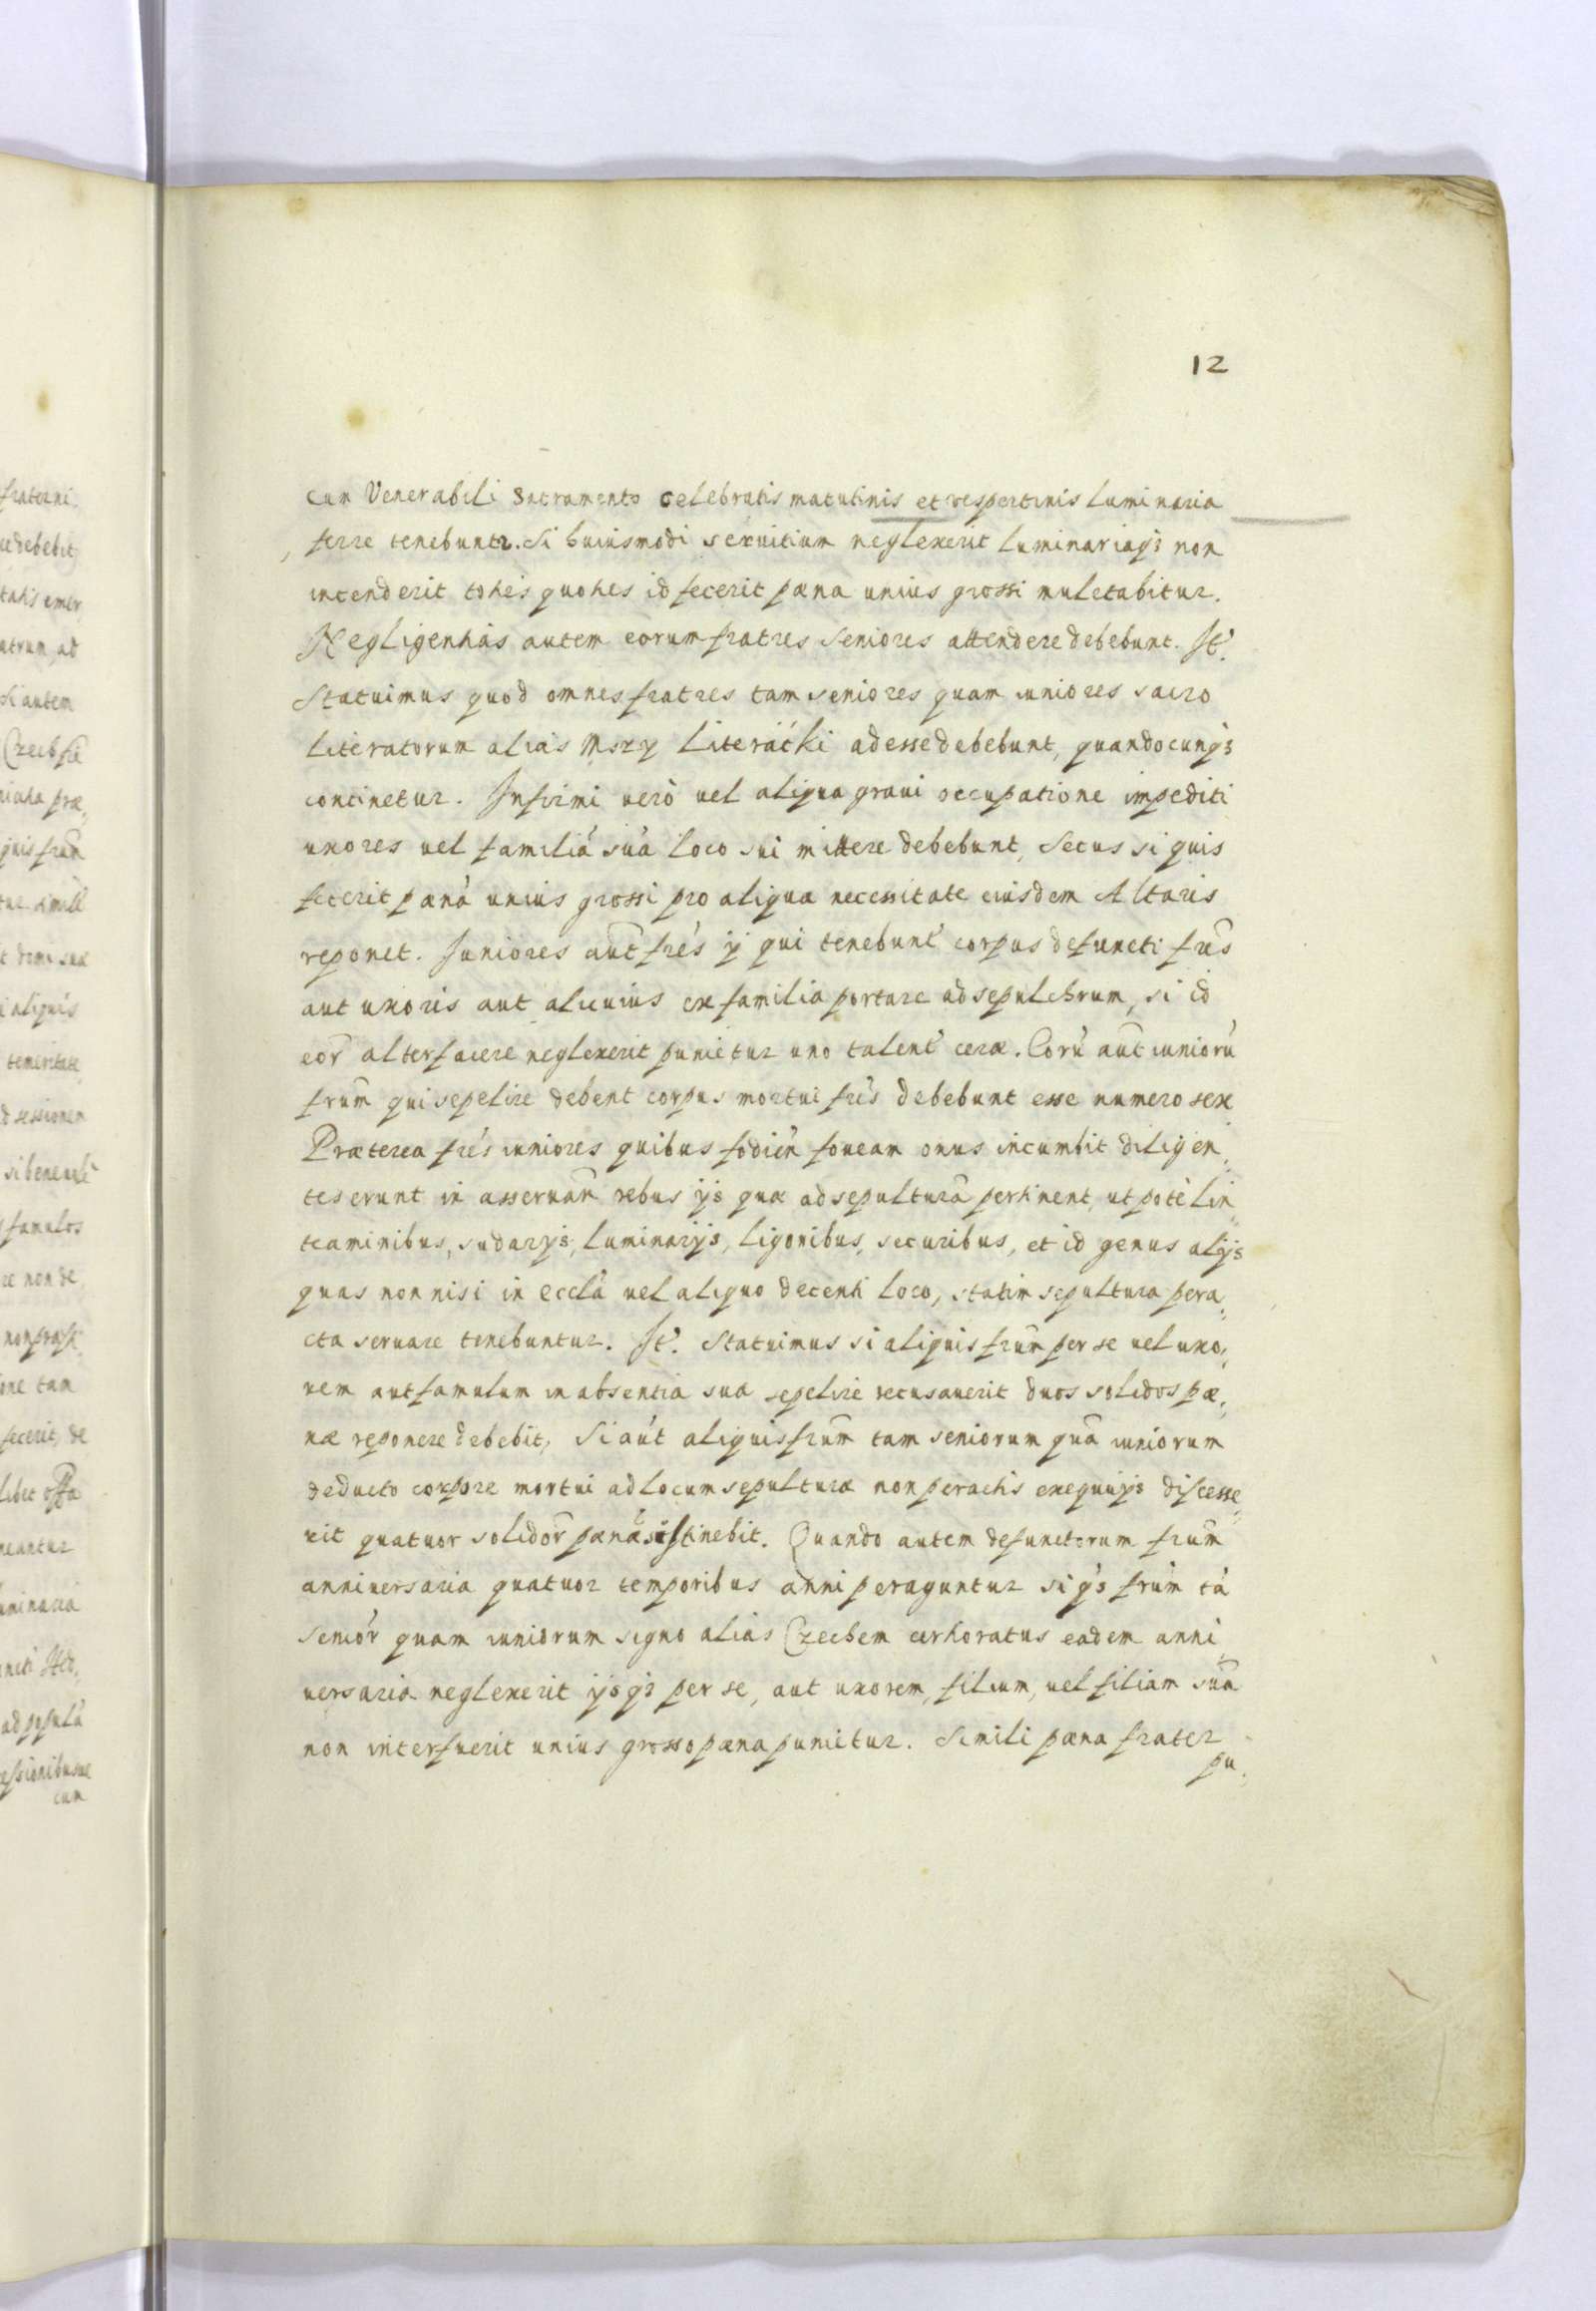 12
cum Venerabili Sacramento celebratis matutinis et vespertinis luminaria
ferre tenebuntr. Si huiusmodi seruitium neglexerit luminariaqꝫ non
incenderit toties quoties id fecerit pæna unius grossi mulctabitur.
Negligentias autem eorum fratres seniores attendere debebunt. It̃.
Statuimus quod omnes fratres tam seniores quam iuniores sacro
literatorum alias Mszy Literácki adesse debebunt, quandocunqꝫ
continetur. Infirmi uerò uel aliqua graui occupatione impediti
uxores uel familiá suá loco sui mittere debebunt, Secus si quis
fecerit pæná unius grossi pro aliqua necessitate eiusdem Altaris
reponet. Iuniores aut̃ frẽs ij qui tenebunt̃ corpus defuncti fris̃
aut uxoris aut alicuius ex familia portare ad sepulchrum, si id
eor̃ alter facere neglexerit punietur uno talent̃ ceræ. Eorũ aut̃ iuniorũ
frum̃ qui sepelire debent corpus mortui fris̃ debebunt esse numero sex
Præterea frẽs iuniores quibus fodień foueam onus incumbit diligen,
tes erunt in asseruań rebus ijs quæ ad sepulturã pertinent, utpotè lin,
teaminibus, sudarijs, luminarijs, ligonibus, securibus, et id genus alijs
quas non nisi in eccl̃a uel aliquo decenti loco, statim sepultura pera,
cta seruare tenebuntur. It̃. Statuimus si aliquis frum̃ per se uel uxo,
rem aut famulum in absentia sua sepelire recusauerit duos solidos pæ,
næ reponere debebit, Si aut̃ aliquis frum̃ tam seniorum quã iuniorum
deducto corpore mortui ad locum sepulturæ non peractis exequijs discesse,
rit quatuor solidor̃ pænã sustinebit. Quando autem defunctorum frum̃
anniuersaria quatuor temporibus anni peraguntur si qs̃ frum̃ tã
senior̃ quam iuniorum signo alias Czechem certioratus eadem anni,
uersaria neglexerit ijsqꝫ per se, aut uxorem, filium, uel filiam suã
non interfuerit unius grosso pæna punietur. Simili pæna frater
pu,